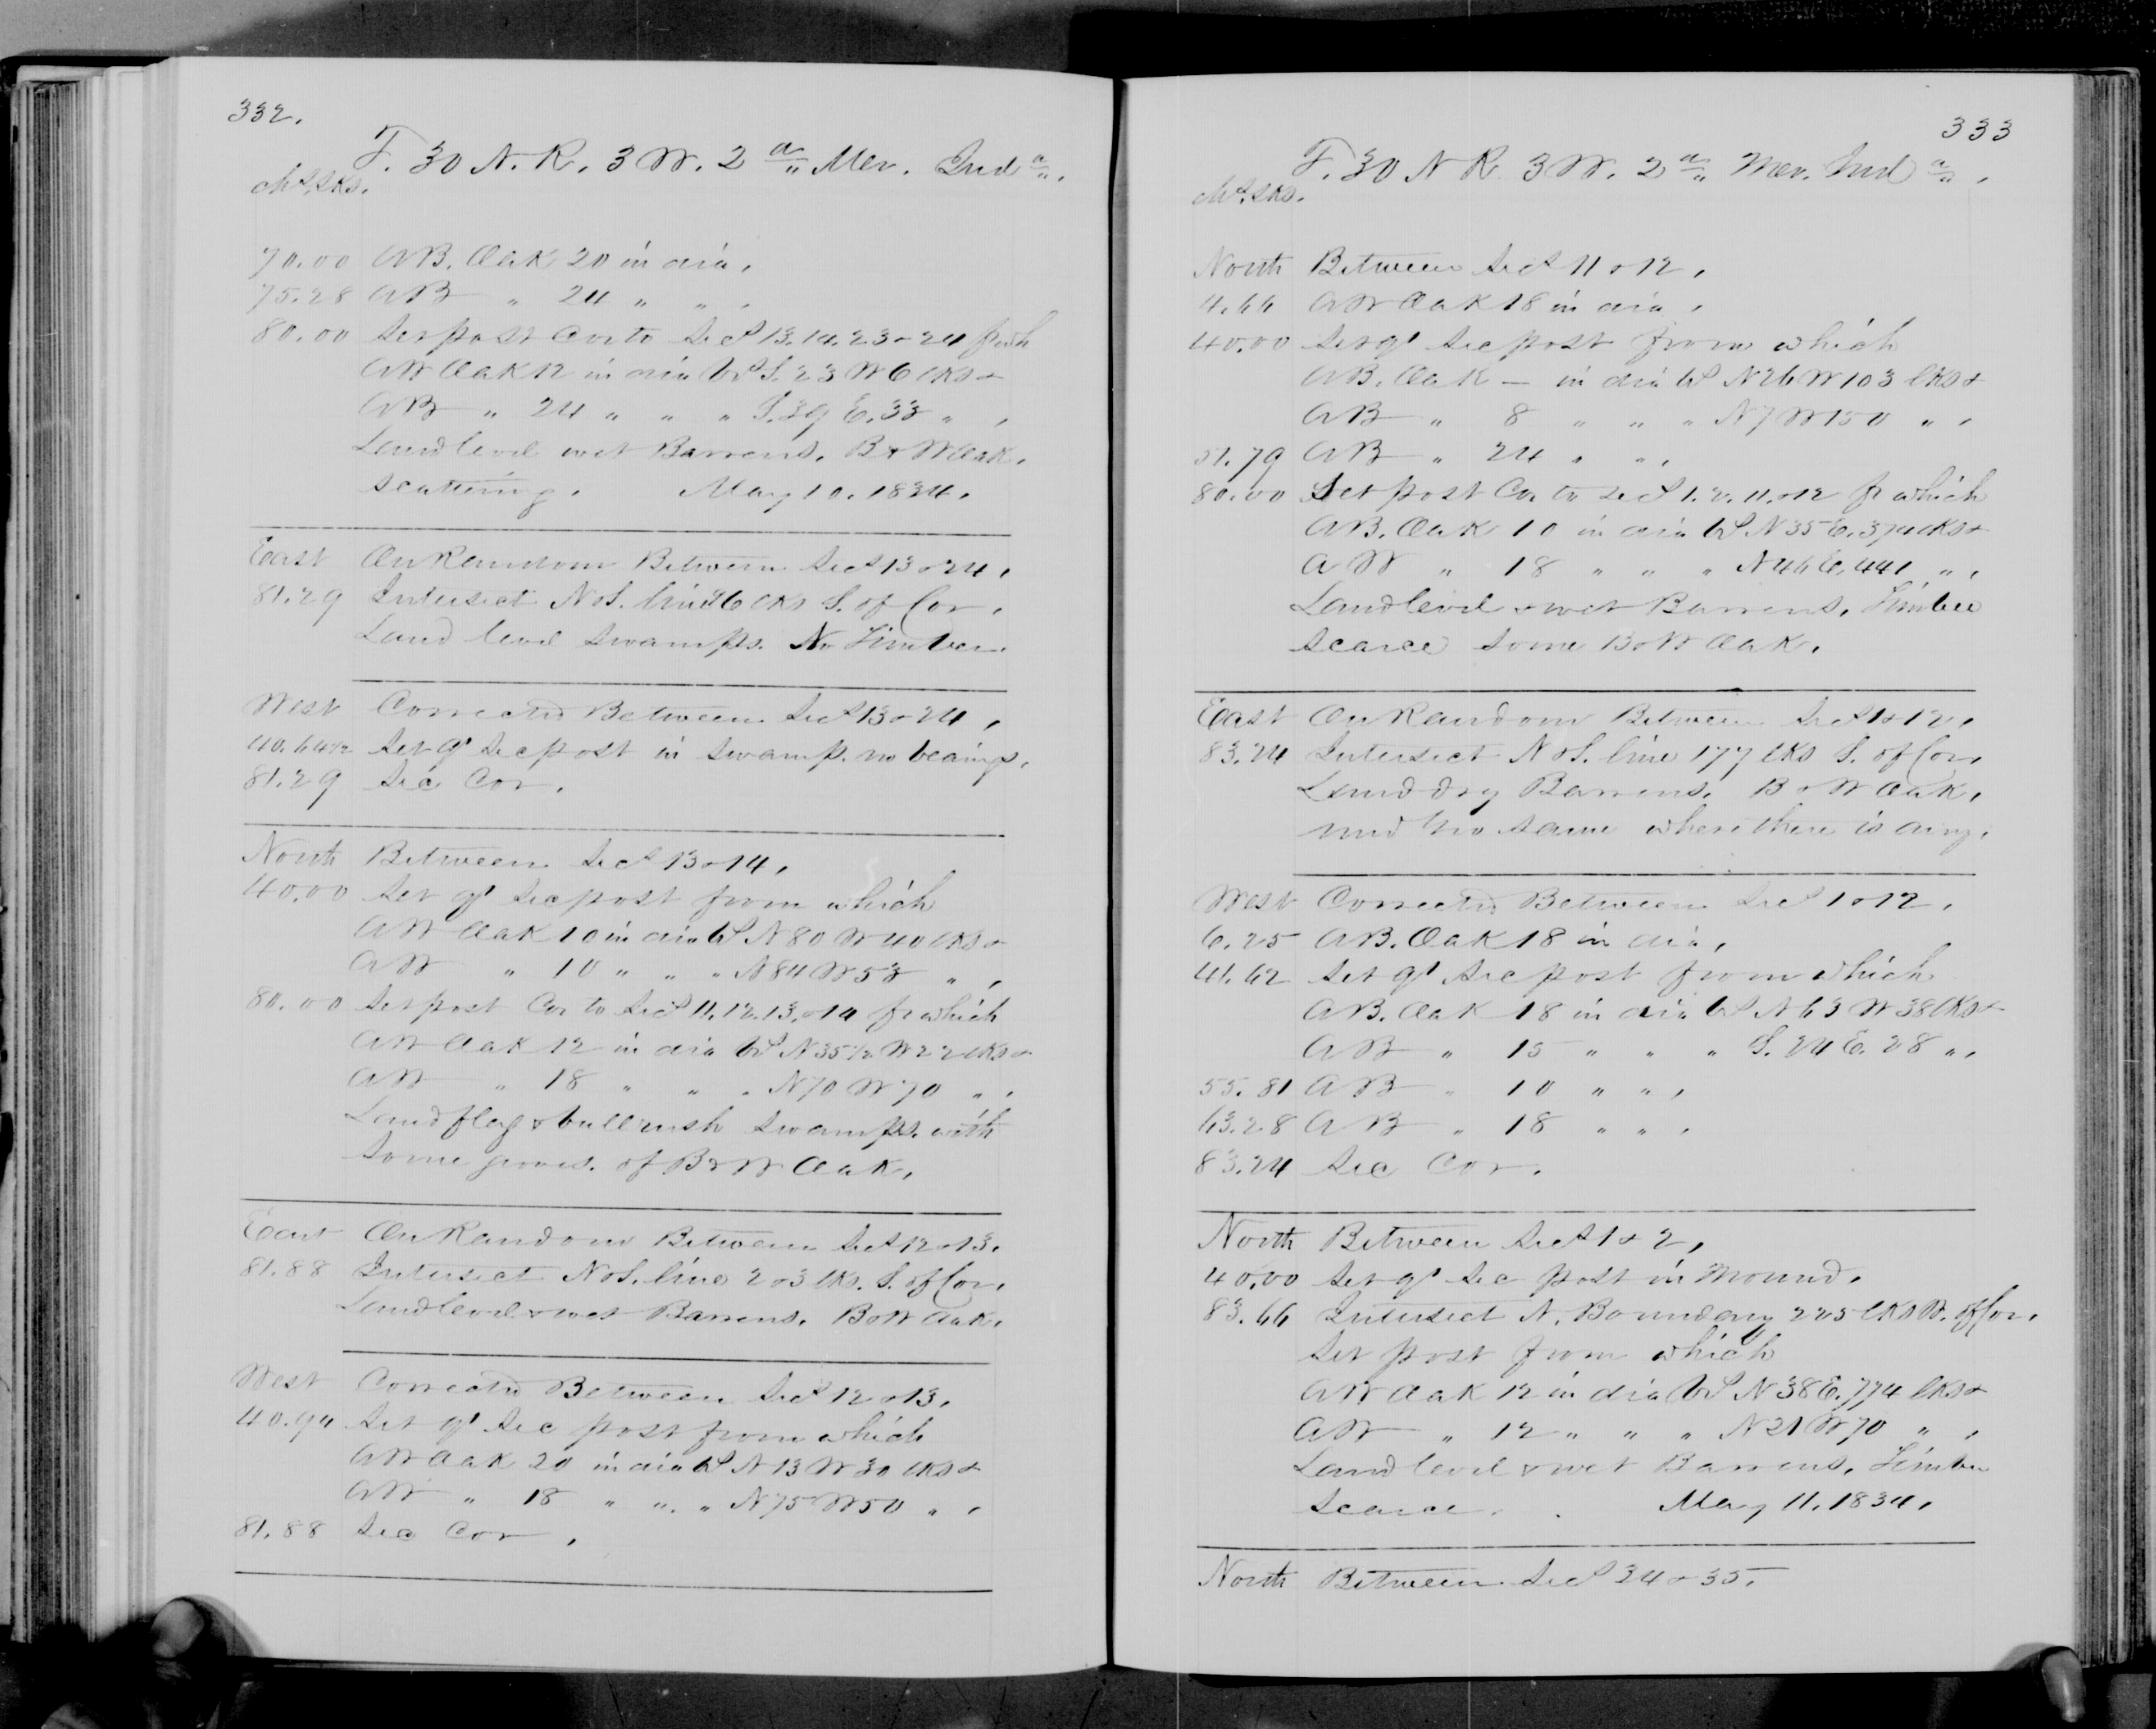 332.
T. 30 N. R. 3 W. 2d Mer. Inda.
Chs. Lks.
70.00 A B. Oak 20 in dia,
75.28 A B " 24 " " ,
80.00 Set post Cor to Secs 13. 14. 23 & 24 f wh
A W Oak 12 in dia bs S. 23 W 6 lks &
A B " 24 " " " S. 39 E. 33 " ,
Land level wet Barrens. B & W Oak,
scattering. May 10. 1834.
East On Random Between Secs 13 & 24,
81.29 Intersect N & S. line 26 lks S. of Cor,
Land level swamps. No Timber.
West Corrected Between Secs 13 & 24,
40.64½ Set qr Sec post in swamp. no bearings,
81.29 Sec Cor,
North Between Secs 13 & 14,
40.00 Set qr Sec post from which
A W Oak 10 in dia bs N 80 W 40 lks &
A W " 10 " " " N 84 W 53 " ,
80.00 Set post Cor to Secs 11. 12. 13. & 14 fr which
A W Oak 12 in dia bs N 35½ W 22 lks &
A W " 18 " " " N 70 W 70 " ,
Land flag & bullrush swamps. with
some groves. of B & W Oak,
East On Random Between Secs 12 & 13.
81.88 Intersect N & S. line 203 lks. S. of Cor,
Land level & wet Barrens. B & W Oak,
West Corrected Between Secs 12 & 13,
40.94 Set qr Sec post from which
A W Oak 20 in dia bs N 13 W 30 lks &
A W " 18 " " " N 75 W 50 " ,
81.88 Sec Cor ,
333
T. 30 N R. 3 W. 2d Mer. Inda,
Chs. Lks.
North Between Secs 11 & 12,
4.66 A W Oak 18 in dia,
40.00 Set qr Sec post from which
A B. Oak — in dia bs N 26 W 103 lks &
A B " 8 " " " N 7 W 150 " ,
51.79 A B " 24 " " ,
80.00 Set post Cor to Secs 1. 2. 11. & 12 fr which
A B. Oak 10 in dia bs N 35 E. 374 lks &
A W " 18 " " " N 46 E. 441 " ,
Land level & wet Barrens, Timber
scarce some B & W Oak,
East On Random Between Secs 1 & 12,
83.24 Intersect N & S. line 177 lks S. of Cor,
Land dry Barrens. B & W Oak,
und gro same where there is any.
West Corrected Between Secs 1 & 12,
6.25 A B. Oak 18 in dia,
41.62 Set qr Sec post from which
A B. Oak 18 in dia bs N 63 W 38 lks &
A B " 15 " " " S. 24 E. 28 " ,
55.81 A B " 10 " " ,
63.28 A B " 18 " " ,
83.24 Sec Cor.
North Between Secs 1 & 2,
40.00 Set qr Sec post in Mound.
83.66 Intersect N. Boundary 225 lks W. of Cor,
Set post from which
A W Oak 12 in dia bs N 38 E. 774 lks &
A W " 12 " " " N 21 W 70 " ,
Land level & wet Barrens, Timber
Scarce. May 11. 1834,
North Between Secs 34 & 35.